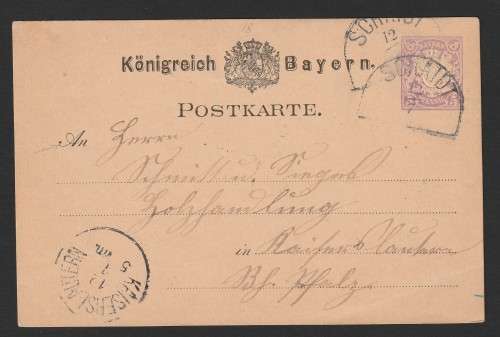 Königreich Bayern.
POSTKARTE.
An Herrn
Schmitt u. Siegel
Holzhandlung
in Kaiserslautern
Rh. Pfalz.
KAISERSLAUTERN
12
7
5
12